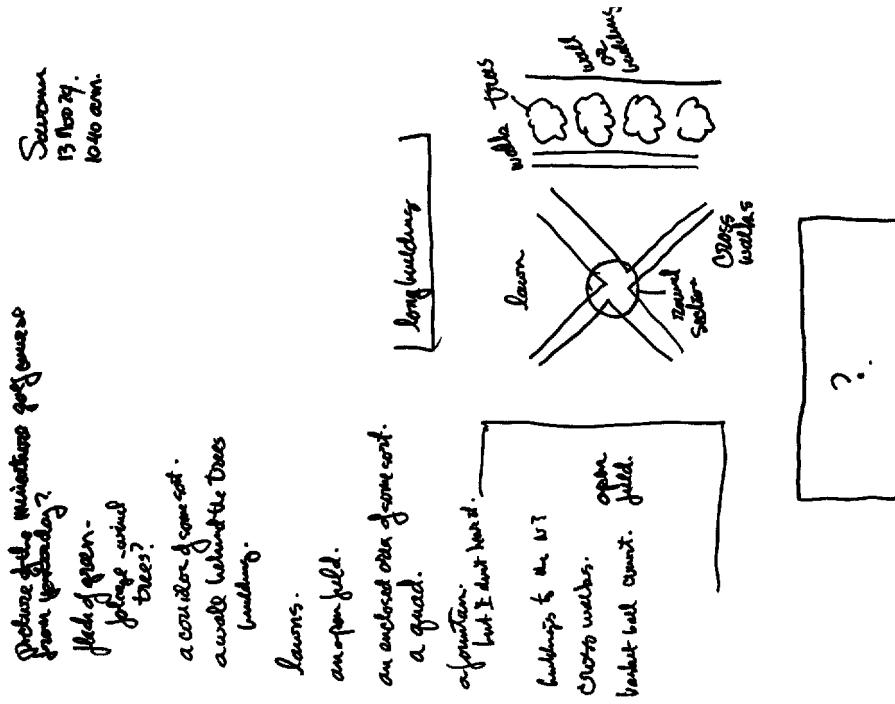 13 Nov 79.
1040 am.
Picture of the miniature golf course
from yesterday?
foliage - wind
trees?
a corridor of some sort.
a wall behind the trees
building.
lawns.
an open field.
an enclosed area of some sort.
a quad.
a fountain.
but I dont have it.
buildings to the N?
cross walks.
basket ball court.
open
field.
long building
lawn
round
section
cross
walks
walk
trees
wall
or
building
?.